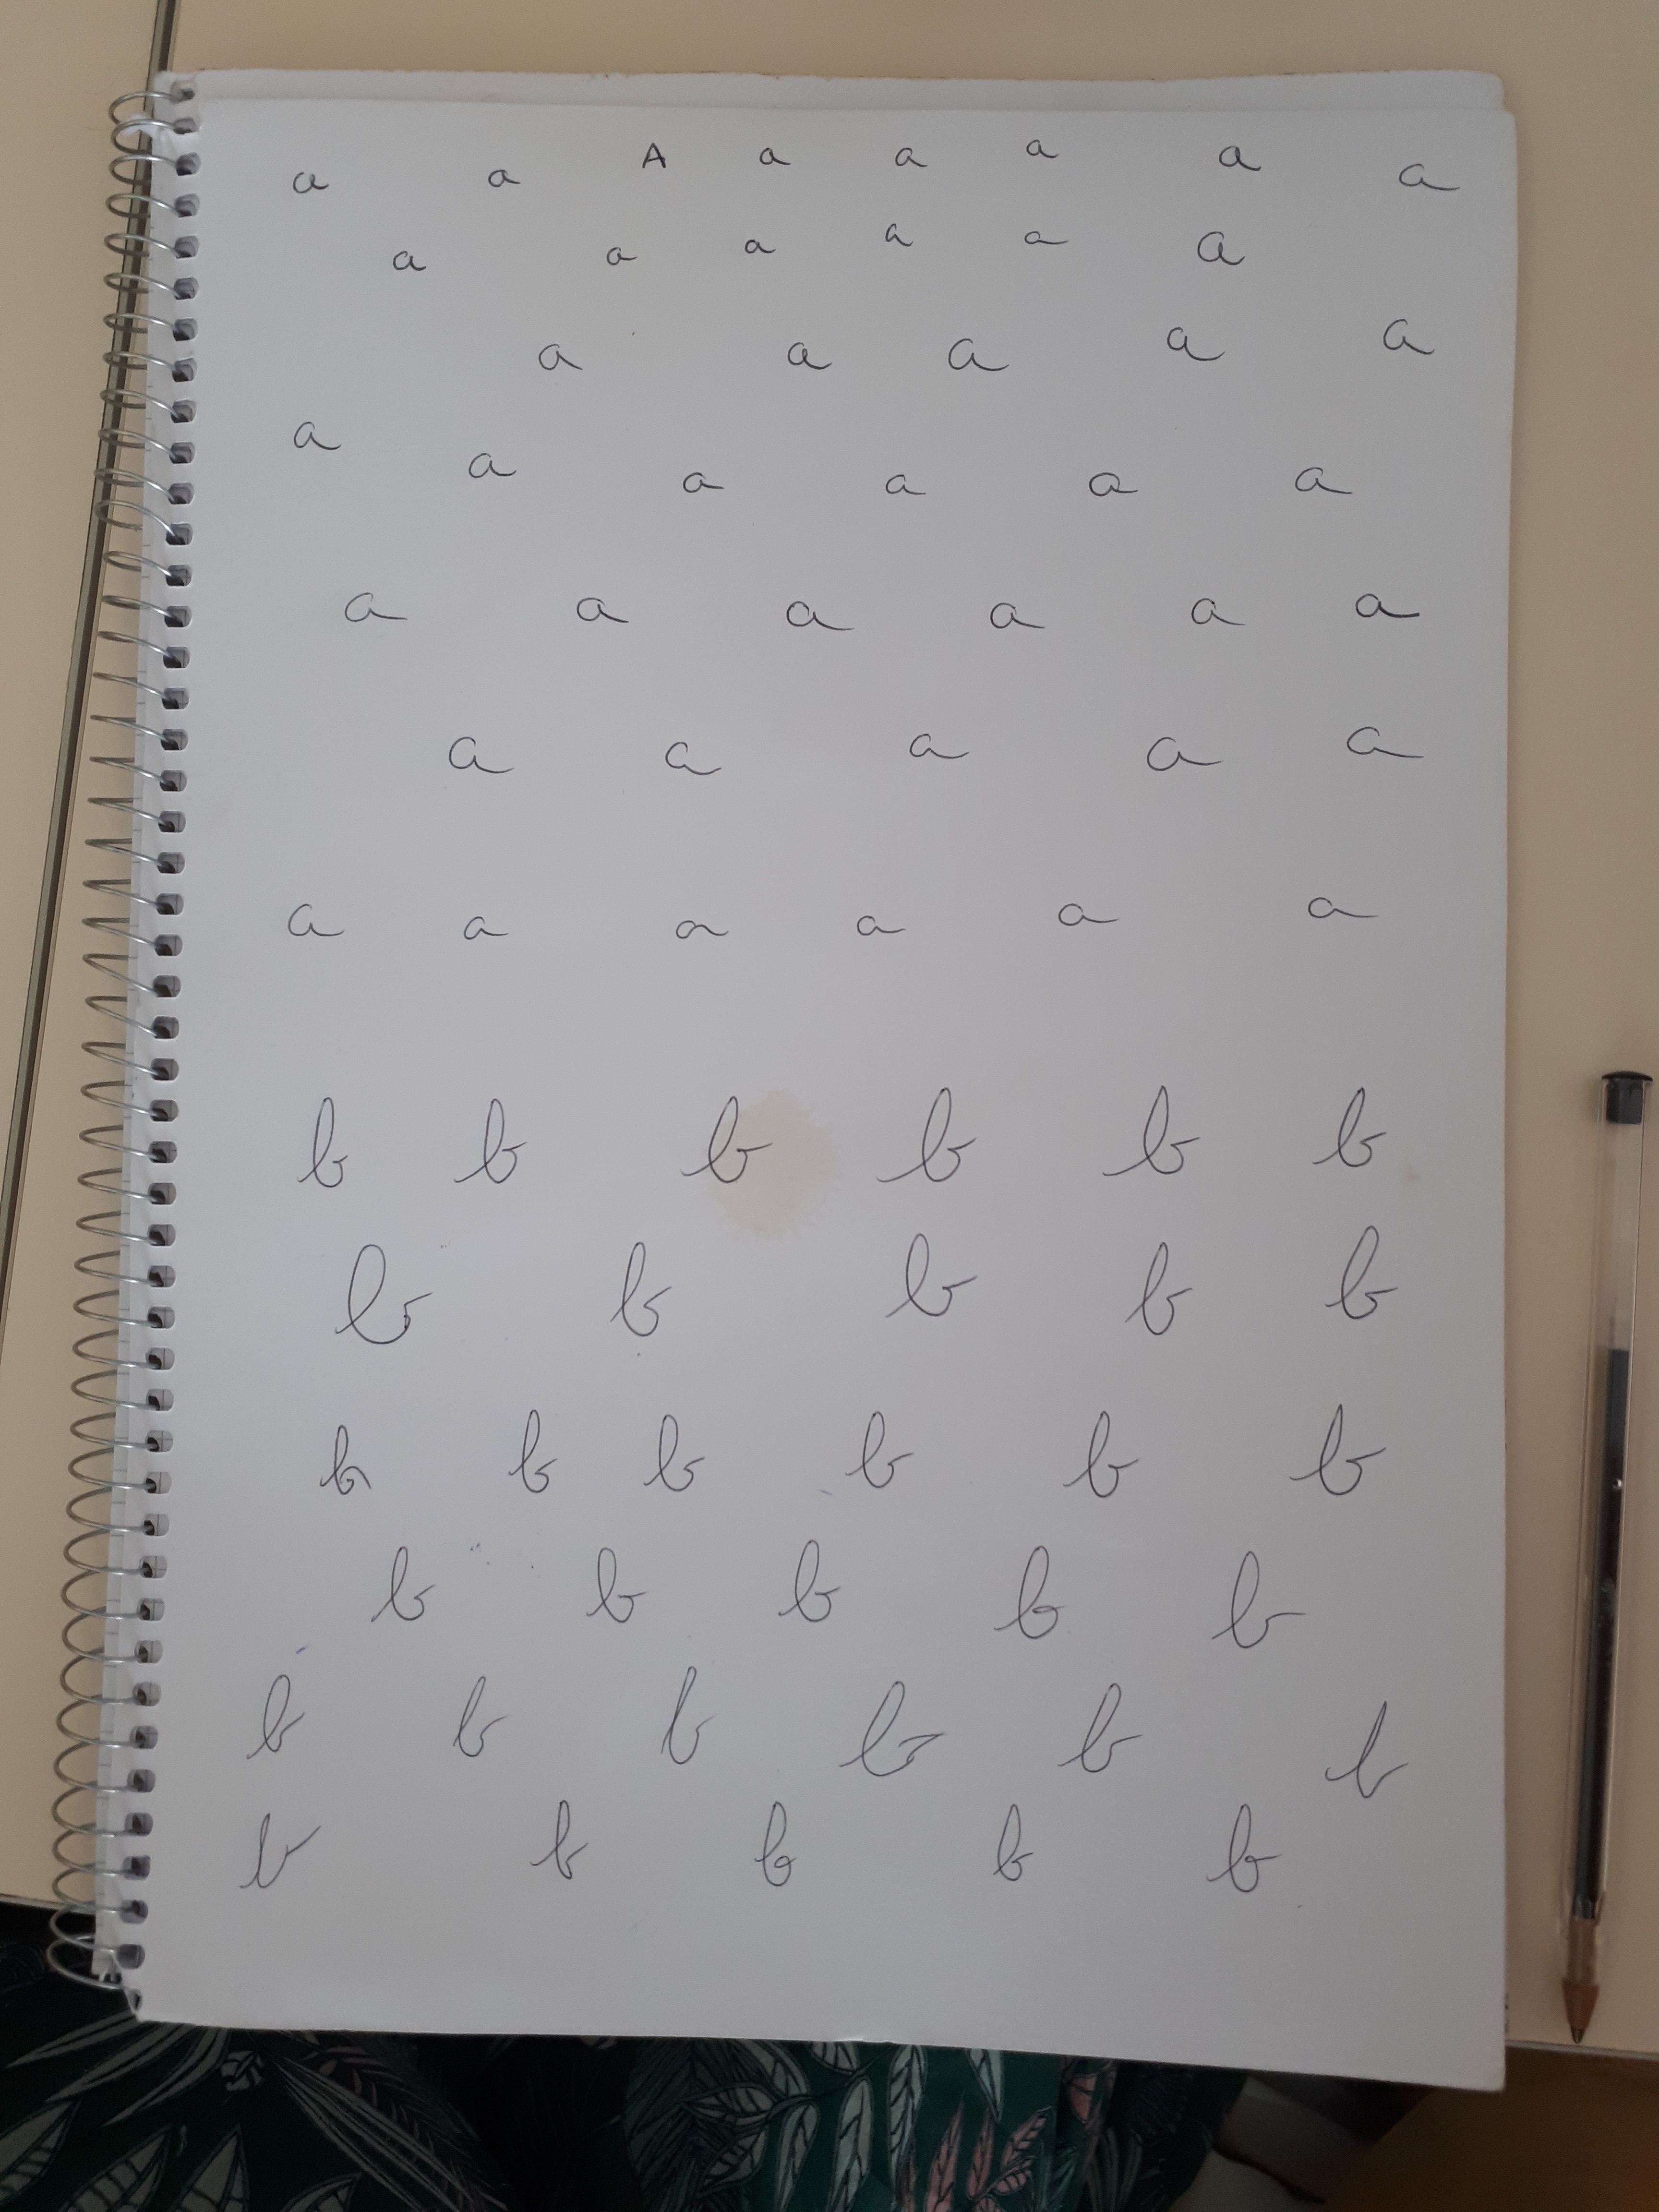 a a A a a a a a
a a a a a a
a a a a a
a a a a a a
a a a a a a
a a a a a
a a a a a a
b b b b b b
b b b b b
b b b b b b
b b b b b
b b b b b b
b b b b b